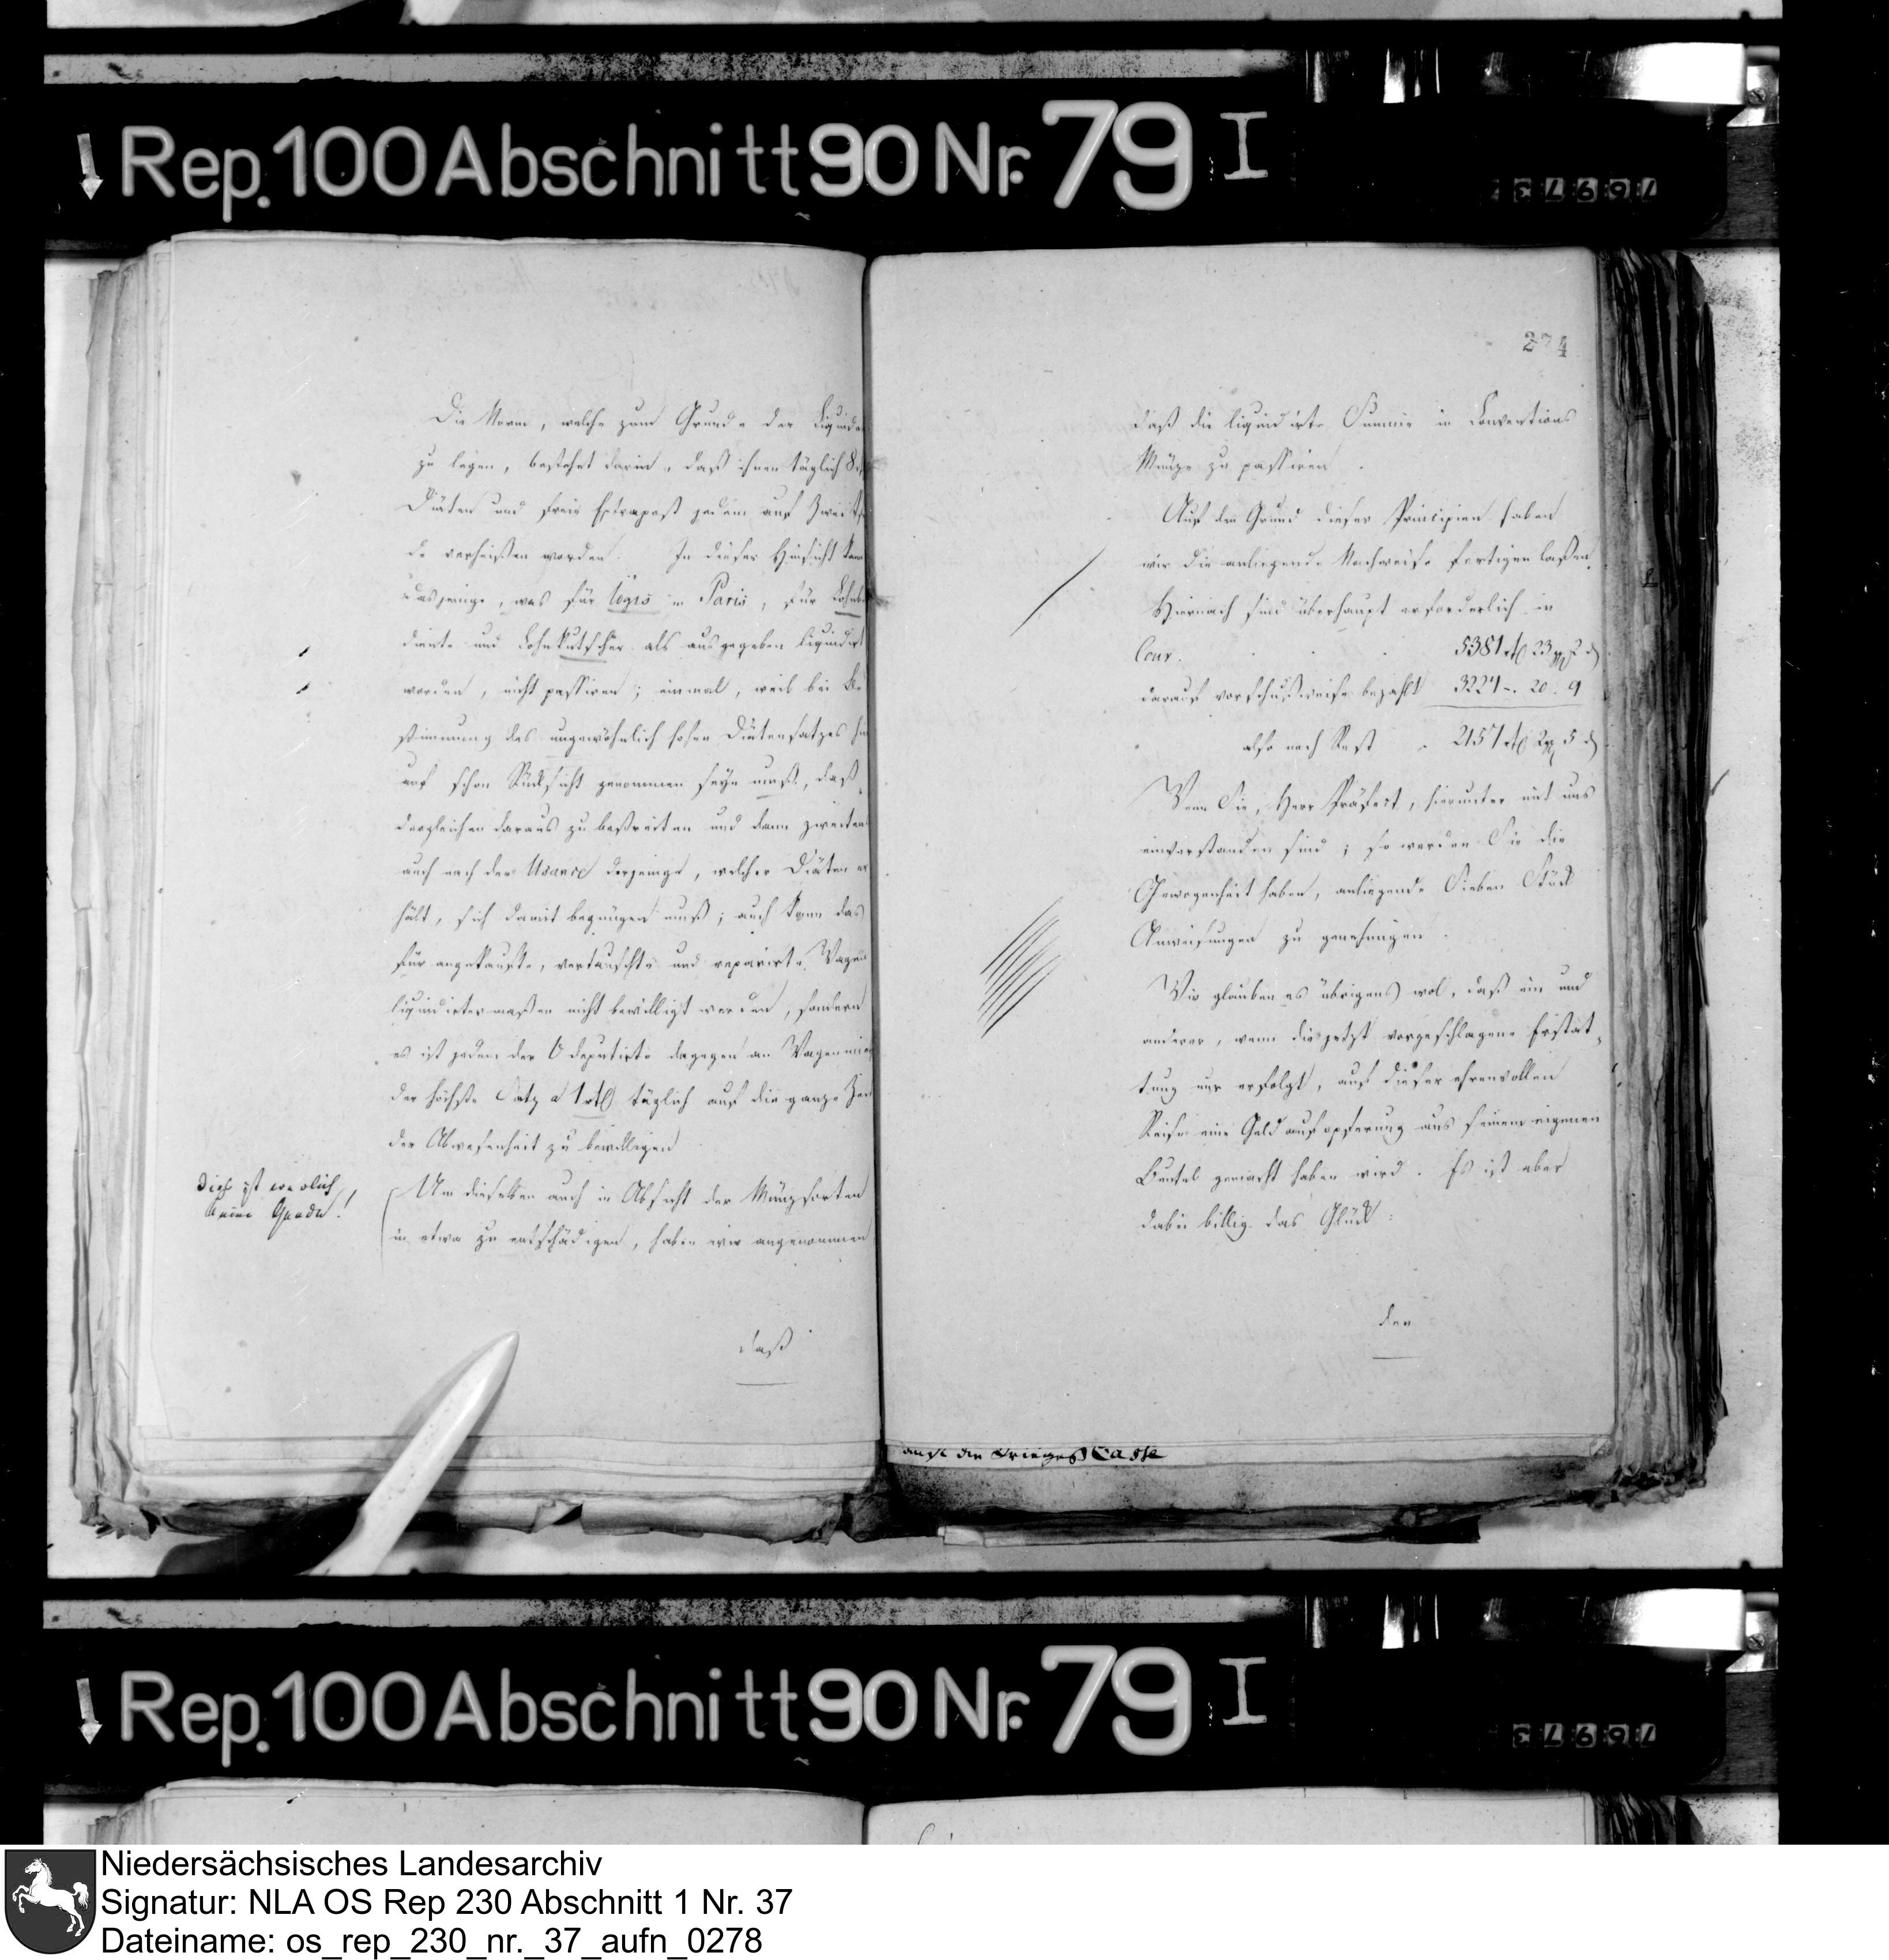 Rep. 100 Abschnitt 90 Nr. 79 I
76973
Die Norm, welche zum Grunde der Liquida
zu legen, bestehet darin, daß ihnen täglich 8
Diäten und freie Extrapost jedem auf Zwei
de verheißen worden. In dieser Hinsicht kann
dasjenige, was für logis in Paris, für Lohnbe
diente und Lohnkutscher als ausgegeben liquidirt
worden, nicht passiren; einmal, weil bei Be
stimmung des ungewöhnlich hohen Diätensatzes hier
auf schon Rücksicht genommen seyn muß, daß
dergleichen daraus zu bestreiten und dann zweitens
auch nach der Usance derjenige, welcher Diäten er
hält, sich damit begnügen muß; auch kann das
für angekaufte, vertauschte und reparirte Wagen
liquidirtermaßen nicht bewilligt werden, sondern
es ist jedem der Deputirte dagegen an Wagenmie
der höchste Satz a 1 rtl täglich auf die ganze Zeit
der Abwesenheit zu bewilligen
Dieß ist
keine Gnade!
Um dieselben auch in Absicht der Münzsorten
in etwa zu entschädigen, haben wir angenommen
daß
274
daß die liquidirte Summe in Conventions
Münze zu passiren.
Auf den Grund dieser Principien haben
wir die anliegende Nachweise fertigen laßen.
Hiernach sind überhaupt erforderlich in
Cour. 5381 rtl 23 2 d
darauf vorschußweise bezahlt 3224 -. 20. 9
also noch Rest 2157 rtl 2 5 d
Wenn Sie, Herr Präfect, hierunter mit uns
einverstanden sind; so werden Sie die
Gewogenheit haben, anliegende Sieben Stück
Anweisungen zu genehmigen.
Wir glauben es übrigens wol, daß ein und
anderer, wenn die jetzt vorgeschlagene Erstat-
tung nur erfolgt, auf dieser ehrenvollen
Reise eine Geldaufopferung aus seinem eigenen
Beutel gemacht haben wird. Es ist aber
dabei billig das Glück:
den
auf die Krieges Casse
Rep. 100 Abschnitt 90 Nr. 79 I
76973
Niedersächsisches Landesarchiv
Signatur: NLA OS Rep 230 Abschnitt 1 Nr. 37
Dateiname: os_rep_230_nr._37_aufn_0278